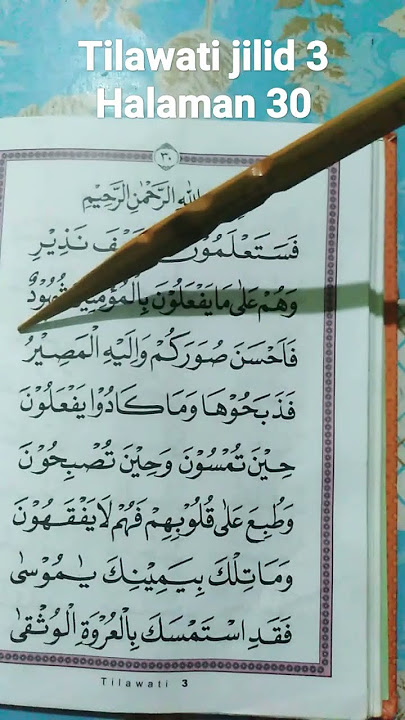 Tilawati jilid 3
Halaman 30
٣٠
اللهِ الرَّحْمٰنِ الرَّحِيْمِ
فَسَتَعْلَمُوْنَ نَذِيْرِ
وَهُمْ عَلٰى مَا يَفْعَلُوْنَ بِالْمُؤْمِنِيْنَ شُهُوْدٌ
فَاَحْسَنَ صُوَرَكُمْ وَاِلَيْهِ الْمَصِيْرُ
فَذَبَحُوْهَا وَمَا كَادُوْا يَفْعَلُوْنَ
حِيْنَ تُمْسُوْنَ وَحِيْنَ تُصْبِحُوْنَ
وَطُبِعَ عَلٰى قُلُوْبِهِمْ فَهُمْ لَا يَفْقَهُوْنَ
وَمَا تِلْكَ بِيَمِيْنِكَ يٰمُوْسٰى
فَقَدِ اسْتَمْسَكَ بِالْعُرْوَةِ الْوُثْقٰى
Tilawati 3